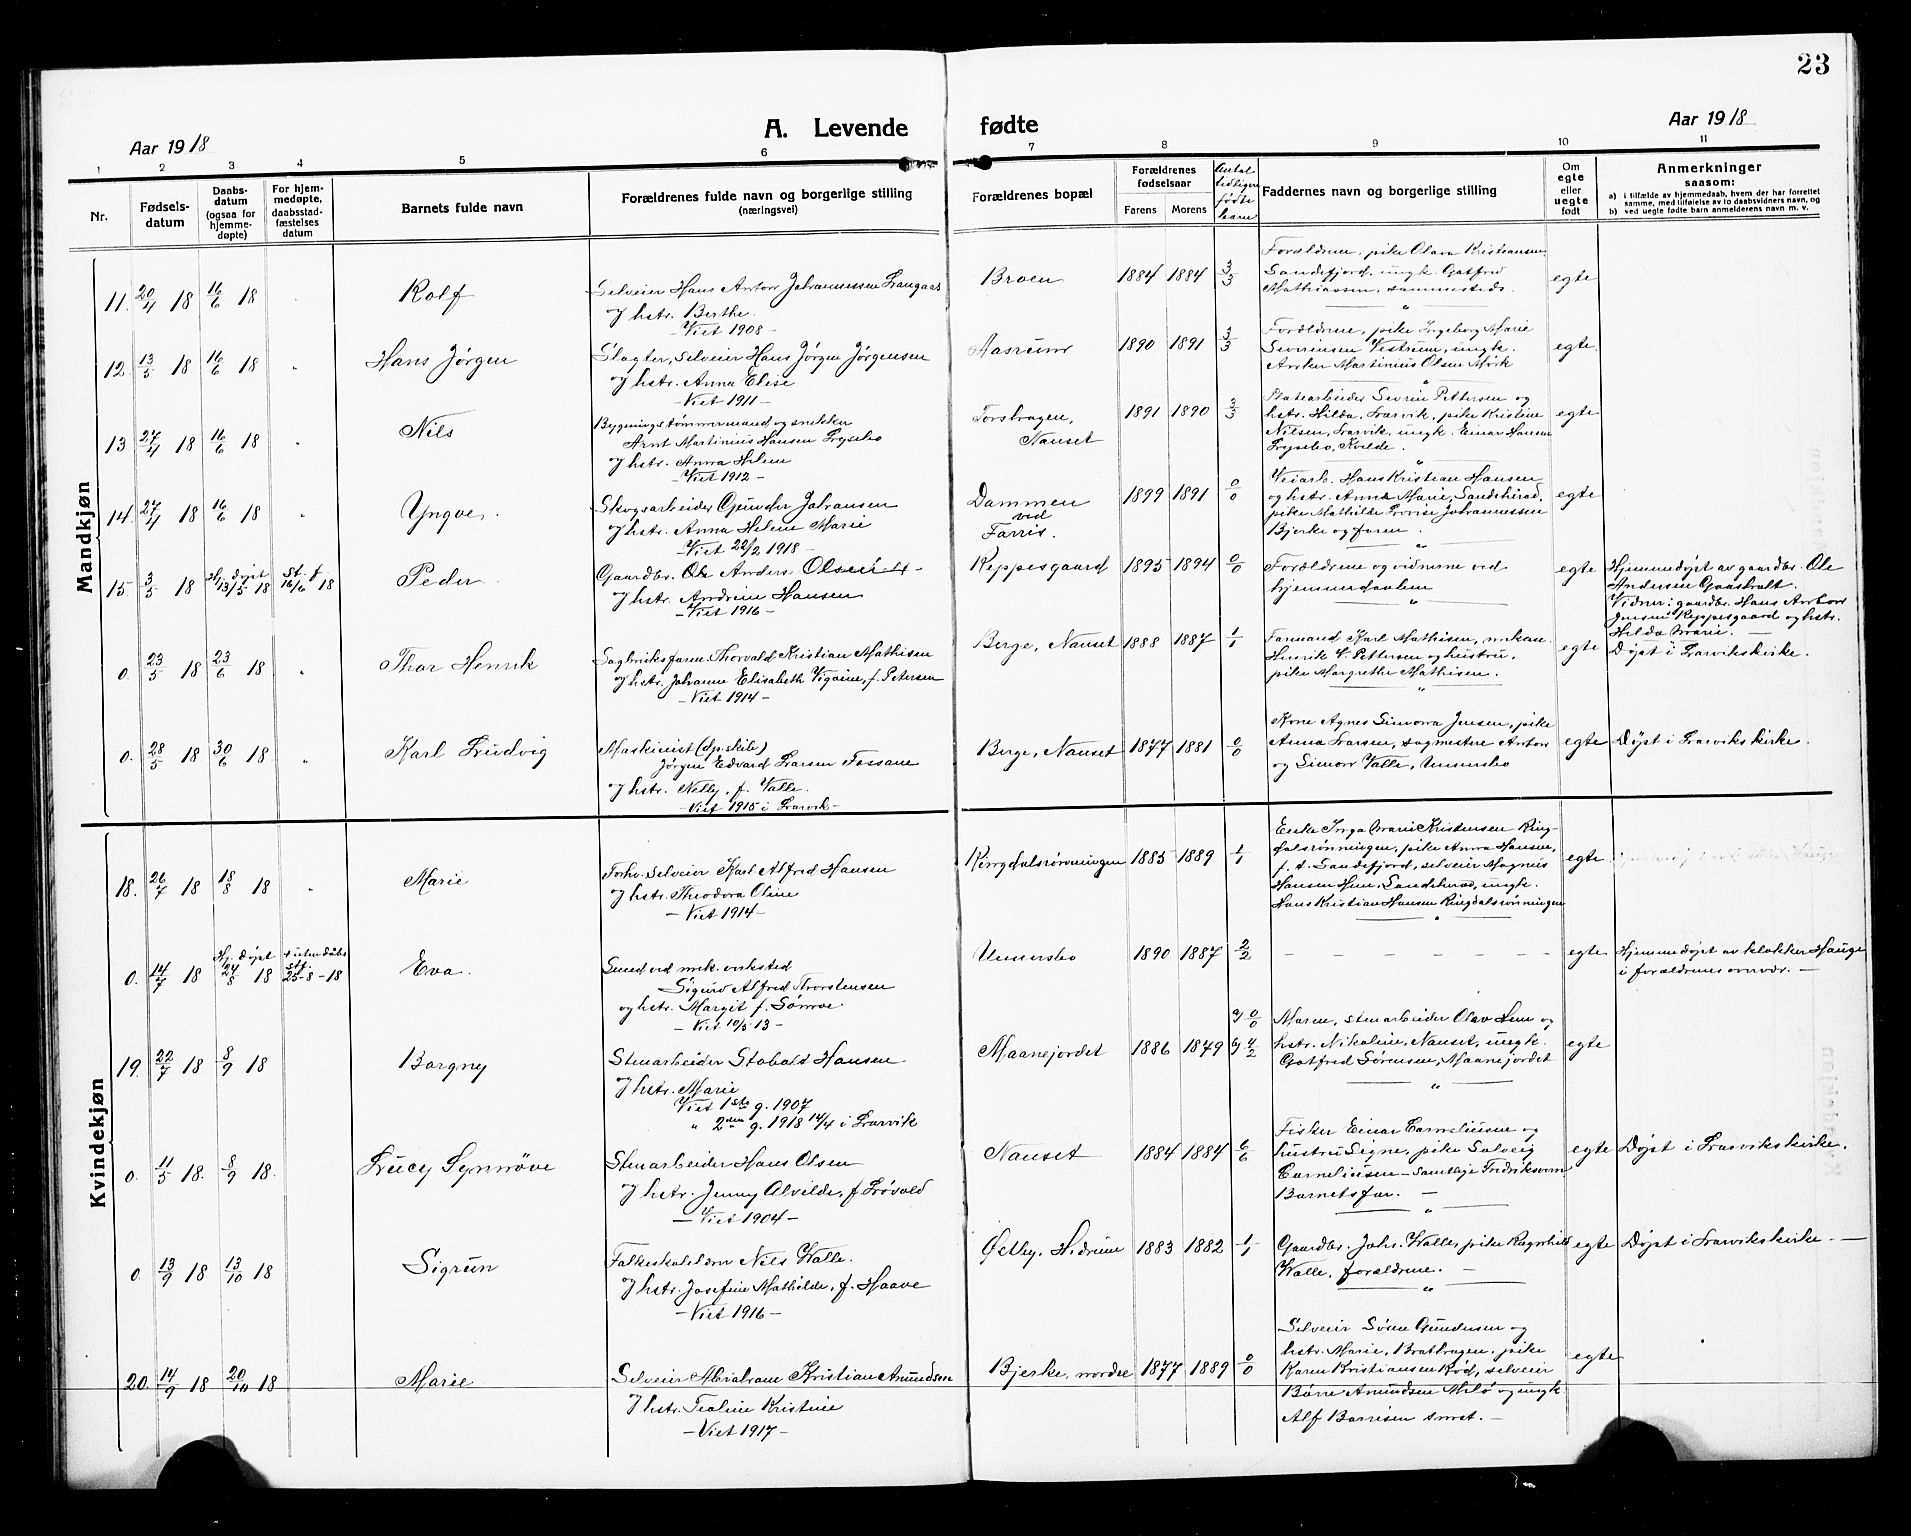 23
Aar 1918
A. Levende fødte
Aar 1918
1 2 3 4 5 6 7 8 9 10 11
Nr.
Fødsels-
datum
Daabs-
datum
(ogsaa for
hjemme-
døpte)
For hjem-
medøpte,
daabsstad-
fæstelses
datum
Barnets fulde navn
Forældrenes fulde navn og borgerlige stilling
(næringsvei)
Forældrenes bopæl
Forældrenes
fødselsaar
Farens Morens
Antal
tidligere
fødte
barn
Faddernes navn og borgerlige stilling
Om
egte
eller
uegte
født
Anmerkninger
saasom:
a) i tilfælde av hjemmedaab, hvem der har forrettet
samme, med tilføielse av to daabsvidners navn, og
b) ved uegte fødte barn anmelderens navn m. v.
Mandkjøn
11. 20/4 18 16/6 18 Rolf
Selveier Hans Anton Johannessen Langaas
og hstr. Berthe.
- Viet 1908 -
Broen 1884 1884 3/3
Forældrene, pike Olava Kristiansen,
Sandefjord, ungk. Gotfred
Mathiassen, sammesteds.
egte
12. 13/5 18 16/6 18 Hans Jørgen
Slagter, selveier Hans Jørgen Jørgensen
og hstr. Anna Elise
- Viet 1911 -
Aasrum 1890 1891 3/3
Forældrene, pike Ingeborg Marie
Severinsen Vestrum, ungk.
Anker Martinius Olsen Mørk
egte
13. 27/4 18 16/6 18 Nils
Bygningstømmermand og snekker
Arnt Martinius Hansen Lysebo
og hstr. Anna Helene
- Viet 1912 -
Torshagen,
Nanset
1891 1890 3/3
Statearbeider Sevrin Pettersen og
hstr. Hilda, Larvik, pike Kristine
Nilsen, Larvik, ungk. Einar Hansen
Lysebo, Kvelde.
egte
14. 27/4 18 16/6 18 Yngve.
Skogsarbeider Gunder Johansen
og hstr. Anna Helene Marie
- Viet 22/2 1918 -
Dammen
ved
Farris.
1899 1891 0/0
Veiarb. Hans Kristian Hansen
og hstr. Anna Marie, Sandeherad,
pike Mathilde Lovise Johannessen
Bjerke og faren.
egte
15. 3/5 18 Hj. døpt 13/5 18 St. f. 16/6 18 Peder
Gaardbr. Ole Anders Olsen
og hstr. Andrine Hansen
- Viet 1916 -
Reppesgaard 1895 1894 0/0
Forældrene og vidnerne ved
hjemmedaaben
egte
Hjemmedøpt av gaardbr. Ole
Andersen Gaasholt.
Vidner: gaardbr. Hans Anton
Jensen Reppesgaard og hstr.
Hilda Marie. -
0. 23/5 18 23/6 18 Thor Henrik
Sagbruksform. Thorvald Kristian Mathisen
og hstr. Johanne Elisabeth Vigaine, f. Petersen
- Viet 1914 -
Berge, Nanset 1888 1887 1/1
Formand Karl Mathisen, mekan.
Henrik V. Pettersen og hustru,
pike Margrethe Mathisen.
egte
Døpt i Larvikskirke.
0. 28/5 18 30/6 18 Karl Ludvig
Maskinist (dp.skib)
Jørgen Edvard Larsen Fossane
og hstr. Nelly, f. Valle.
- Viet 1915 i Larvik -
Berge, Nanset 1877 1881 0/0
Kone Agnes Simorra Jensen, pike
Anna Larsen, sagmestere Anton
og Simon Valle, Unnersbo
egte
Døpt i Larvikskirke.
Kvindekjøn
18. 26/7 18 18/8 18 Marie
Forhv. Selveier Karl Alfred Hansen
og hstr. Theodora Oline
- Viet 1914 -
Ringdalsrønningen 1885 1889 1/1
Enke Inga Marie Kristensen Ring-
dalsrønningen, pike Anna Hansen,
f. t. Sandefjord, selveier Magnus
Hansen Hem, Sandeherad, ungk.
Hans Kristian Hansen Ringdalsrønningen
egte
0. 14/7 18 Hj. døpt 24/8 18 stf. 25-8-18 Eva.
Smed ved mek. verksted
Sigurd Alfred Thorstensen
og hstr. Margit f. Sönroe.
- Viet 10/5 13 -
Unnersbo 1890 1887 2/2
- - - - - - -
egte
Hjemmedøpt av klokker Hauge
i forældrenes overvær. -
19. 22/7 18 8/9 18 Borgny
Stenarbeider Stobald Hansen
og hstr. Marie
Viet 1ste g. 1907
" 2den g. 1918 14/4 i Larvik
Maanejordet 1886 1879 g 0/0 g 4/2
Moren, stenarbeider Olav Hem og
hstr. Nikoline, Nanset, ungk.
Gotfred Sørensen, Maanejordet
egte
0. 11/5 18. 8/9 18. Lucy Synnøve
Stenarbeider Hans Olsen
og hstr. Jenny Alvilde, f. Løvald
- Viet 1904 -
Nanset 1884 1884 6/6
Fisker Einar Corneliusen og
hustru Signe, pike Solveig
Corneliusen - samtlige Fredriksvern
Barnets far. -
egte
Døpt i Larvikskirke.
0. 13/9 18 13/10 18 Sigrun
Folkeskolelærer Nils Walle.
og hstr. Josefine Mathilde, f. Haave
- Viet 1916 -
Østby, Hedrum 1883 1882 1/1
Gaardbr. Johs. Walle, pike Ragnhild
Walle, forældrene. -
egte
Døpt i Larvikskirke -
20. 14/9 18 20/10 18 Marie
Selveier Abraham Kristian Amundsen
og hstr. Teoline Kristine
- Viet 1917 -
Bjerke, nordre 1877 1889 0/0
Selveier Søren Gundersen og
hstr. Marie, Brathagen, pike
Karen Kristiansen Rød, selveier
Børre Amundsen Milø og ungk
Alf Borresen smst. -
egte